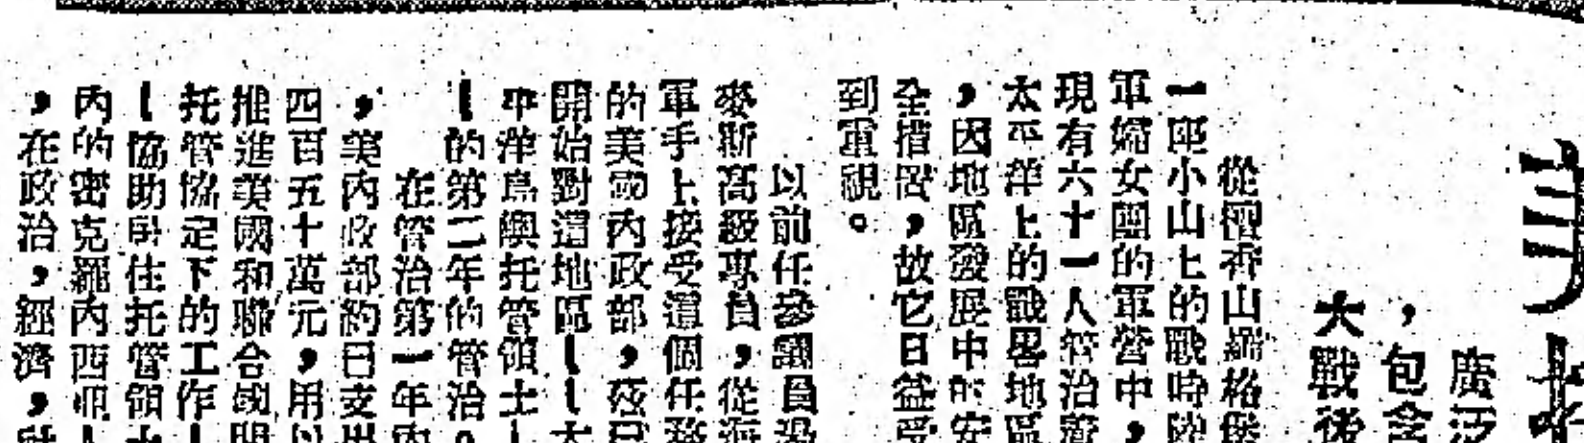 廣泛
，包含
大戰後
從檀香山
一座小山上的戰時陸
軍婦女團的軍營中，
現有六十一人管治
太平洋上的戰畧地區
，因地區發展中的安
全措置，故它日益受
到重視。
以前任參議員
麥斯高級專員，從海
軍手上接受這個任務
的美國內政部，茲已
開始對這地區——大
平洋島嶼托管領土—
—的第二年的管治。
在管治第一年內
，美內政部約已支出
四百五十萬元，用以
推進美國和聯合國
托管協定下的工作—
—協助居住托管領土
內的密克羅內西亞人
，在政治，經濟，